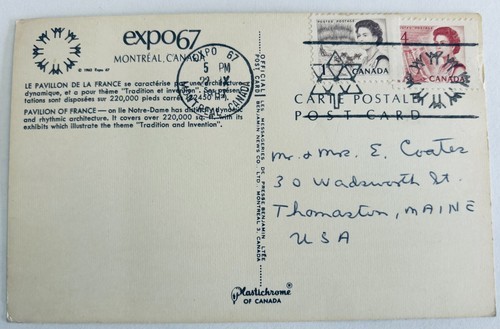 expo67
MONTRÉAL, CANADA
© 1963 Tous
LE PAVILLON DE LA FRANCE se caractérise par une architecture
dynamique, et a pour thème "Tradition et invention". Ses présen-
tations sont disposées sur 220,000 pieds carrés
PAVILION OF FRANCE — on Ile Notre-Dame has distinct, dynamic
and rhythmic architecture. It covers over 220,000 sq. ft. with its
exhibits which illustrate the theme "Tradition and Invention".
EXPO 67
5 PM
22 IX
MONTREAL CANADA
OFFICIAL LES MESSAGERIES DE PRESSE BENJAMIN LTÉE
POST CARD BENJAMIN NEWS CO. LTD. MONTREAL 3, CANADA
POSTES POSTAGE
1
CANADA
POSTES POSTAGE
4
CANADA
CARTE POSTALE
POST CARD
Mr. & Mrs. E. Coates
30 Wadsworth St.
Thomaston, MAINE
USA
Plastichrome
OF CANADA